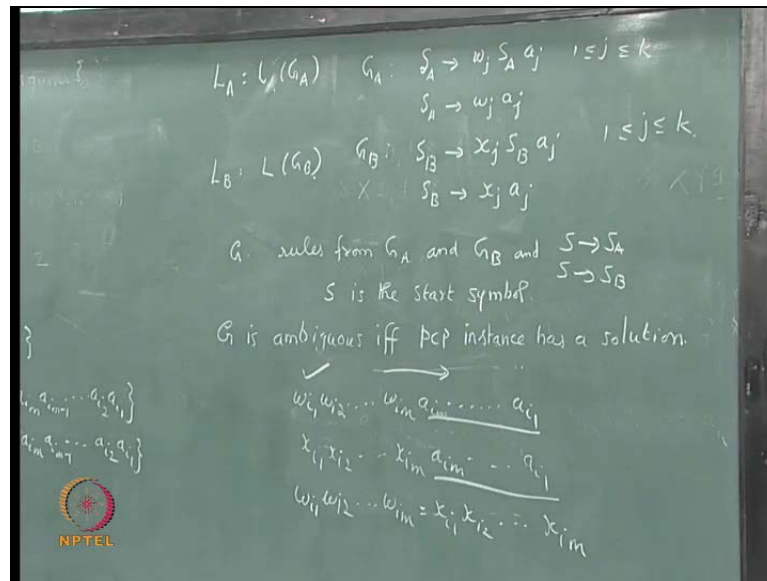 L_A : L(G_A) G_A : S_A → w_j S_A a_j 1 ≤ j ≤ k
S_A → w_j a_j
L_B : L(G_B) G_B : S_B → x_j S_B a_j 1 ≤ j ≤ k.
S_B → x_j a_j
G. rules from G_A and G_B and S → S_A
S → S_B
S is the start symbol.
G is ambiguous iff PCP instance has a solution.
}
w_{i1} w_{i2} ... w_{im} a_{im} ...... a_{i1}
a_{im-1} ... a_{i2} a_{i1} }
x_{i1} x_{i2} ... x_{im} a_{im} ... a_{i1}
a_{im} a_{im-1} ... a_{i2} a_{i1} }
w_{i1} w_{i2} ... w_{im} = x_{i1} x_{i2} ... x_{im}
NPTEL